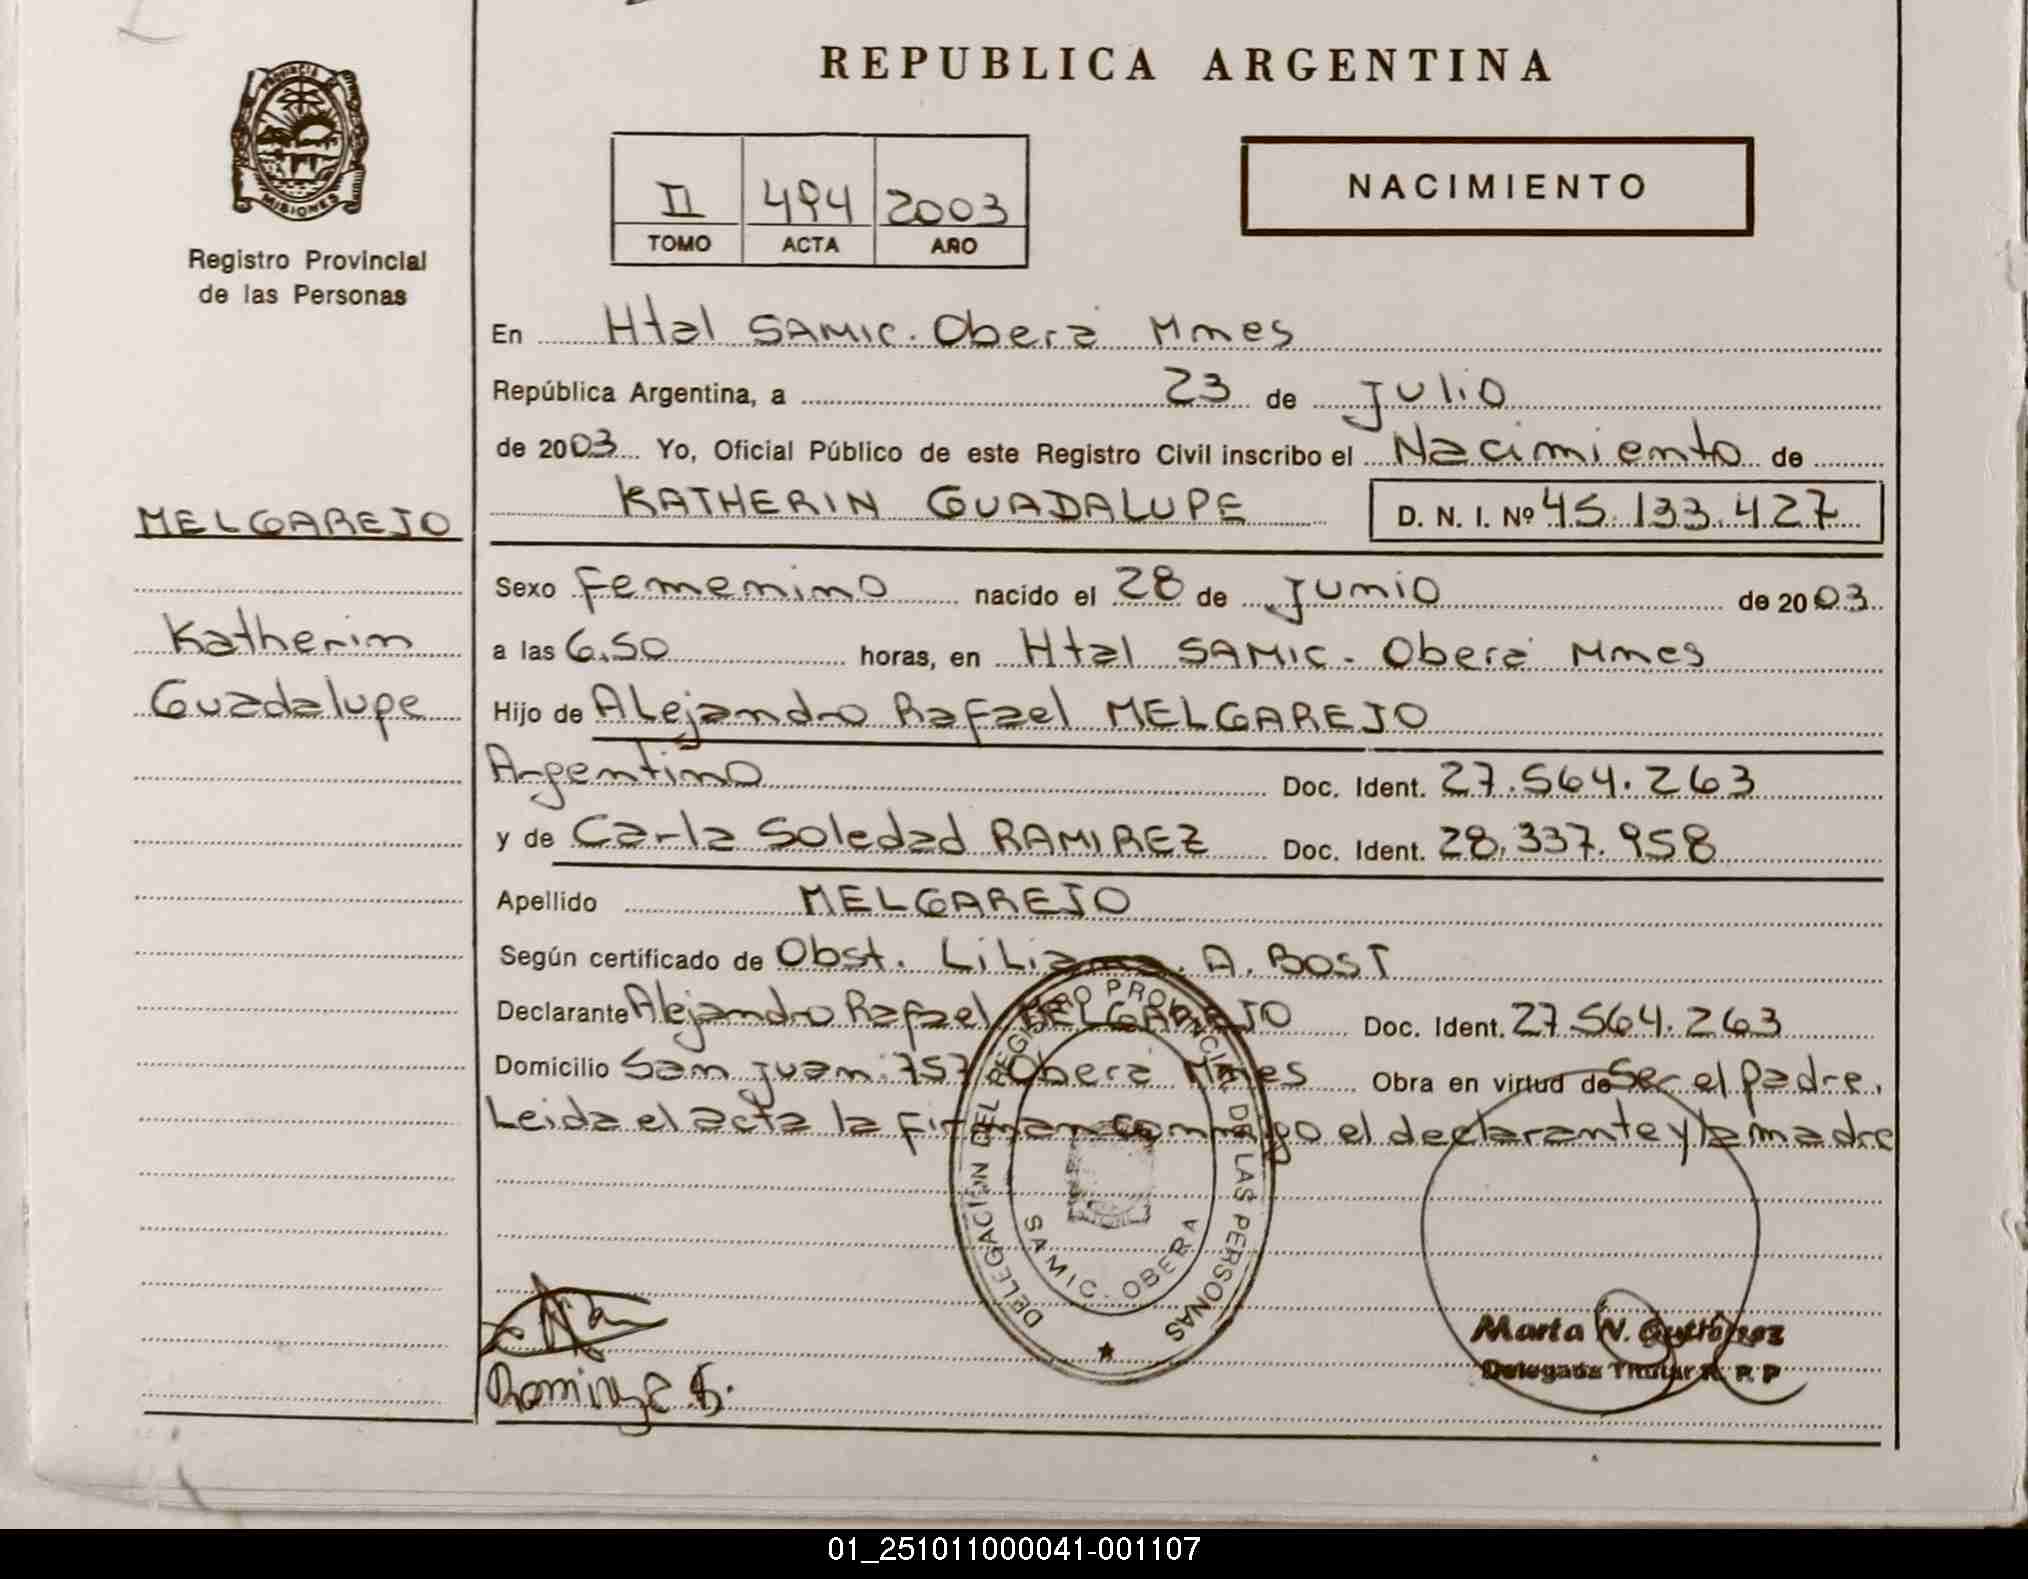 REPUBLICA ARGENTINA
PROVINCIA
MISIONES
Registro Provincial
de las Personas
II 494 2003
TOMO ACTA AÑO
NACIMIENTO
En Htal SAMIC. Oberá Mnes
República Argentina, a 23 de Julio
de 2003 Yo, Oficial Público de este Registro Civil inscribo el Nacimiento de
KATHERIN GUADALUPE D. N. I. Nº 45.133.427
MELGAREJO
Katherin
Guadalupe
Sexo Femenino nacido el 28 de Junio de 2003
a las 6,50 horas, en Htal SAMIC. Oberá Mnes
Hijo de Alejandro Rafael MELGAREJO
Argentino Doc. Ident. 27.564.263
y de Carla Soledad RAMIREZ Doc. Ident. 28.337.958
Apellido MELGAREJO
Según certificado de Obst. Liliana. A. BOST
Declarante Alejandro Rafael MELGAREJO Doc. Ident. 27.564.263
Domicilio San Juan 757 Oberá Mnes Obra en virtud de Ser el padre.
Leida el acta la firman conmigo el declarante y la madre
DELEGACIÓN DEL REGISTRO PROVINCIAL DE LAS PERSONAS
SAMIC. OBERA
Marta N. Gutiérrez
Delegada Titular R. P. P
01_251011000041-001107